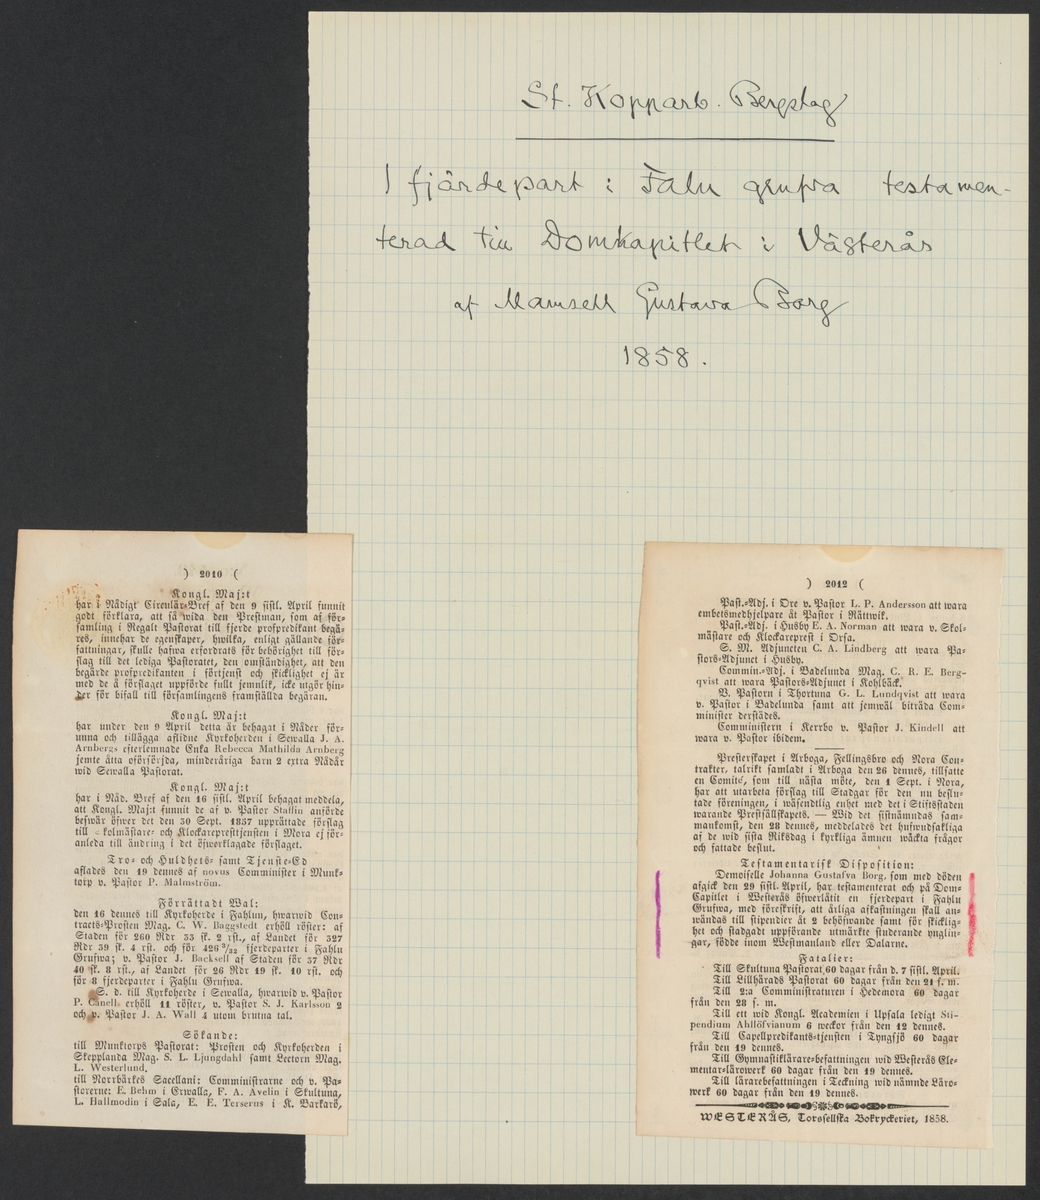 St. Kopparb. Bergslag
1 fjärdepart i Falu grufva testamen-
terad till Domkapitlet i Västerås
af Mamsell Gustava Borg
1858.
) 2010 (
Kongl. Maj:t
har i Nådigt Circulär-Bref af den 9 sistl. April funnit
godt förklara, att så wida den Prestman, som af för-
samling i Regalt Pastorat till fjerde profpredikant begä-
res, innehar de egenskaper, hwilka, enligt gällande för-
fattningar, skulle hafwa erfordrats för behörighet till för-
slag till det lediga Pastoratet, den omständighet, att den
begärde profpredikanten i förtjenst och skicklighet ej är
med de å förslaget uppförde fullt jemnlik, icke utgör hin-
der för bifall till församlingens framställda begäran.
Kongl. Maj:t
har under den 9 April detta år behagat i Nåder för-
unna och tillägga aflidne Kyrkoherden i Sewalla J. A.
Arnbergs efterlemnade Enka Rebecca Mathilda Arnberg
jemte åtta oförsörjda, minderåriga barn 2 extra Nådår
wid Sewalla Pastorat.
Kongl. Maj:t
har i Nåd. Bref af den 16 sistl. April behagat meddela,
att Kongl. Maj:t funnit de af v. Pastor Staffin anförde
beswär öfwer det den 30 Sept. 1857 upprättade förslag
till kolmästare- och Klockareprestjensten i Mora ej för-
anleda till ändring i det öfwerklagade förslaget.
Tro- och Huldhets- samt Tjenste-Ed
aflades den 19 dennes af novus Comminister i Munk-
torp v. Pastor P. Malmström.
Förrättadt Wal:
den 16 dennes till Kyrkoherde i Fahlun, hwarwid Con-
tracts-Prosten Mag. C. W. Baggstedt erhöll röster: af
Staden för 260 Rdr 33 sk. 2 rst., af Landet för 327
Rdr 39 sk. 4 rst. och för 426 3/32 fjerdeparter i Fahlu
Grufwa; v. Pastor J. Backsell af Staden för 37 Rdr
40 sk. 8 rst., af Landet för 26 Rdr 19 sk. 10 rst. och
för 8 fjerdeparter i Fahlu Grufwa.
S. d. till Kyrkoherde i Sewalla, hwarwid v. Pastor
P. Canell erhöll 11 röster, v. Pastor S. J. Karlsson 2
och v. Pastor J. A. Wall 4 utom brutna tal.
Sökande:
till Munktorps Pastorat: Prosten och Kyrkoherden i
Skepplanda Mag. S. L. Ljungdahl samt Lectorn Mag.
L. Westerlund.
till Norrbärkes Sacellani: Comministrarne och v. Pa-
storerne: E. Behm i Erwalla, F. A. Avelin i Skultuna,
L. Hallmodin i Sala, E. E. Terserus i K. Barkarö,
) 2012 (
Past.-Adj. i Ore v. Pastor L. P. Andersson att wara
embetsmedhjelpare åt Pastor i Rättwik.
Past.-Adj. i Husby E. A. Norman att wara v. Skol-
mästare och Klockareprest i Orsa.
S. M. Adjuncten C. A. Lindberg att wara Pa-
stors-Adjunct i Husby.
Commin.-Adj. i Badelunda Mag. C. R. E. Berg-
qvist att wara Pastors-Adjunct i Kohlbäck.
V. Pastorn i Thortuna G. L. Lundqvist att wara
v. Pastor i Badelunda samt att jemwäl biträda Com-
minister derstädes.
Comministern i Kerrbo v. Pastor J. Kindell att
wara v. Pastor ibidem.
Presterskapet i Arboga, Fellingsbro och Nora Con-
trakter, talrikt samladt i Arboga den 26 dennes, tillsatte
en Comité, som till nästa möte, den 1 Sept. i Nora,
har att utarbeta förslag till Stadgar för den nu beslu-
tade föreningen, i wäsendtlig enhet med det i Stiftsstaden
warande Prestsällskapets. — Wid det sistnämndas sam-
mankomst, den 28 dennes, meddelades det hufwudsakliga
af de wid sista Riksdag i kyrkliga ämnen wäckta frågor
och fattade beslut.
Testamentarisk Disposition:
Demoiselle Johanna Gustafva Borg, som med döden
afgick den 29 sistl. April, har testamenterat och på Dom-
Capitlet i Westerås öfwerlåtit en fjerdepart i Fahlu
Grufwa, med föreskrift, att årliga afkastningen skall an-
wändas till stipendier åt 2 behöfwande samt för skicklig-
het och stadgadt uppförande utmärkte studerande ynglin-
gar, födde inom Westmanland eller Dalarne.
Fatalier:
Till Skultuna Pastorat 60 dagar från d. 7 sistl. April.
Till Lillhärads Pastorat 60 dagar från den 21 s. m.
Till 2:a Comministraturen i Hedemora 60 dagar
från den 28 s. m.
Till ett wid Kongl. Academien i Upsala ledigt Sti-
pendium Ahllöfvianum 6 weckor från den 12 dennes.
Till Capellpredikants-tjensten i Tyngsjö 60 dagar
från den 19 dennes.
Till Gymnastiklärare-befattningen wid Westerås Ele-
mentar-lärowerk 60 dagar från den 19 dennes.
Till lärarebefattningen i Teckning wid nämnde Läro-
werk 60 dagar från den 19 dennes.
WESTERÅS, Torssellska Bokryckeriet, 1858.